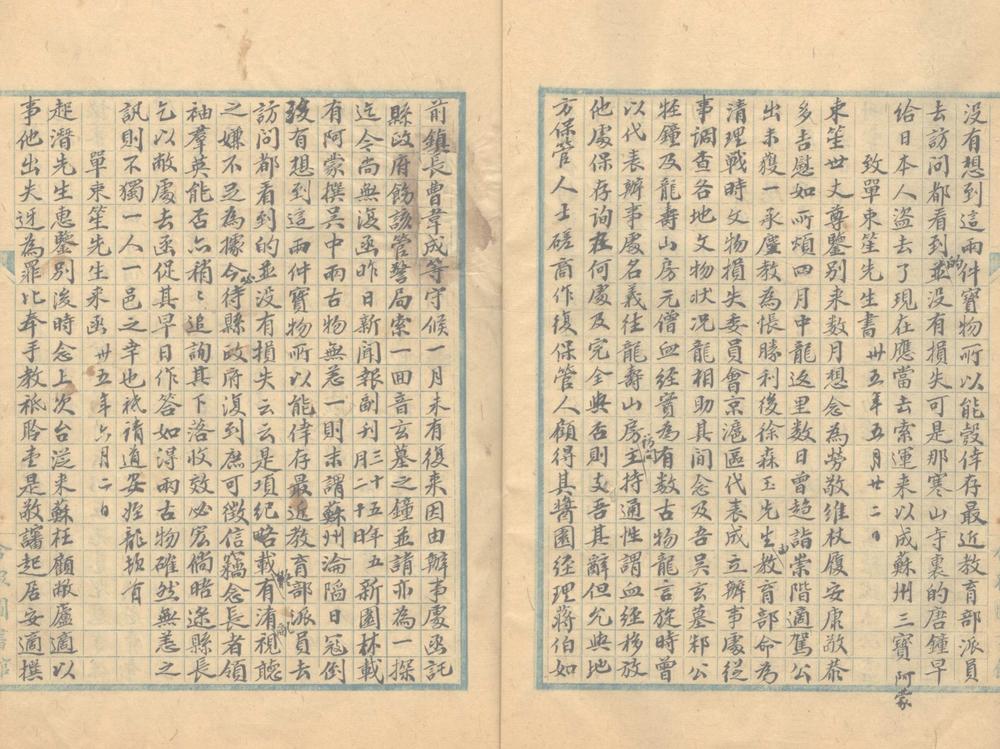 没有想到這兩件寶物所以能彀倖存最近教育部派員
去訪問都看到的並没有損失可是那寒山寺裏的唐鐘早
給日本人盜去了現在應當去索運来以成蘇州三寶 阿蒙
致單束笙先生書 卅五年五月廿二日
束笙世丈尊鑒别来数月想念為勞敬維杖履安康敬黍
多吉慰如所頌四月中龍返里数日曾趨詣崇階適駕公
出未獲一承麈教為悵勝利後徐森玉先生由教育部命為
清理戰時文物損失委員會京滬區代表成立辦事處從
事調查各地文物狀况龍相助其間念及吾吴玄墓邾公
牼鐘及龍壽山房元僧血經實為有数古物龍言旋時曾
以代表辦事處名義往龍壽山房訪問主持通性謂血經移放
他處保存询在何處及完全與否則支吾其辭但允與地
方保管人士磋商作復保管人顧得其醬園经理蔣伯如
前鎮長曹韋成等守候一月未有復来因由辦事處函託
縣政府飭該管警局索一囬音玄墓之鐘並請亦為一探
迄今尚無復函昨日新聞報副刊三十五年五月二十八新園林載
有阿蒙撰吴中兩古物無恙一則末謂蘇州淪陷日冦倒
没有想到這兩件寶物所以能倖存最近教育部派員去
訪問都看到的並没有損失云云是項纪略載有淆視聽
之嫌不足為據今必待縣政府復到庶可徵信竊念長者領
袖羣英能否亦稍〻追詢其下落收效必宏倘晤逵縣長
乞以敝處去函促其早日作答如得兩古物確然無恙之
訊則不獨一人一邑之幸也祇請道安姪龍頓首
單束笙先生来函 卅五年六月二日
起潛先生惠鑒别後時念上次台從来蘇枉顧敝廬適以
事他出失迓為罪比奉手教祇聆壹是敬讅起居安適撰